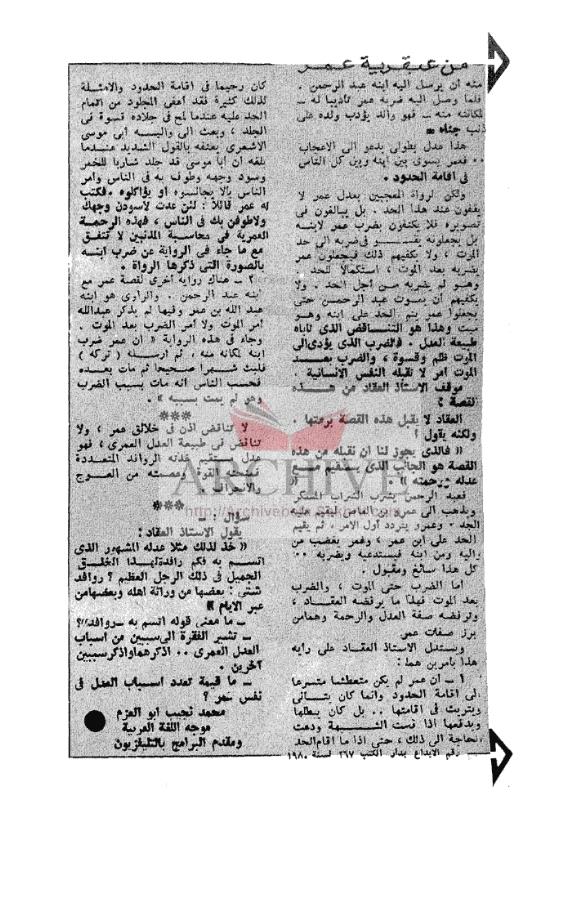 من عبقرية عمر
منه أن يرسل اليه ابنه عبد الرحمن .
فلما وصل اليه ضربه عمر تأديبا له ــ
لمكانته منه ــ فهو والد يؤدب ولده على
ذنب جناه ــ
هذا عدل بطولى يدعو الى الاعجاب
٠٠ فعمر يسوى بين ابنه وبين كل الناس
فى اقامة الحدود .
ولكن لرواة المعجبين بعدل عمر لا
يقفون عند هذا الحد . بل يبالغون فى
تصويره فلا يكتفون بضرب عمر لابنه
بل يجعلونه يقسو فى ضربه الى حد
الموت ، ولا يكفيهم ذلك فيجعلون عمر
يضربه بعد الموت ، استكمالا للحد
وهو لم يضربه من أجل الحد . ولا
يكفيهم أن يموت عبد الرحمن حتى
يجعلوا عمر يتم الحد على ابنه وهو
ميت وهذا هو التناقض الذى تأباه
طبيعة العدل . فالضرب الذى يؤدى الى
الموت ظلم وقسوة ، والضرب بعد
الموت أمر لا تقبله النفس الانسانية .
موقف الاستاذ العقاد من هذه
القصة :
العقاد لا يقبل هذه القصة برمتها .
ولكنه يقول :
« فالذى يجوز لنا أن نقبله من هذه
القصة هو الجانب الذى يستقيم مع
عدله ورحمته » .
فعبد الرحمن يشرب الشراب المسكر
ويذهب الى عمرو بن العاص ليقيم عليه
الحد . وعمرو يتردد أول الأمر ، ثم يقيم
الحد على ابن عمر ، وعمر يغضب من
واليه ومن ابنه فيستدعيه ويضربه ٠٠
كل هذا سائغ ومقبول .
أما الضرب حتى الموت ، والضرب
بعد الموت فهذا ما يرفضه العقاد ،
وترفضه صفة العدل والرحمة وهما من
برز صفات عمر
ويستدل الاستاذ العقاد على رأيه
هذا بأمرين هما :
١ ــ أن عمر لم يكن متعطشا متسرعا
الى اقامة الحدود وانما كان يتأنى
ويتريث فى اقامتها ٠٠ بل كان يبطلها
ويدفعها اذا قامت الشبهة ودعت
الحاجة الى ذلك ، حتى اذا ما أقام الحد
رقم الايداع بدار الكتب ٢٦٧ لسنة ١٩٨٠
كان رحيما فى اقامة الحدود والامثلة
لذلك كثيرة فقد أعفى المجلود من اتمام
الحد عليه عندما لمح فى جلاده قسوة فى
الجلد ، وبعث الى واليه أبى موسى
الأشعرى يعنفه بالقول الشديد عندما
بلغه أن أبا موسى قد جلد شاربا للخمر
وسود وجهه وطوف به فى الناس وأمر
الناس بألا يجالسوه أو يؤاكلوه . فكتب
له عمر قائلا : لئن عدت لأسودن وجهك
ولأطوفن بك فى الناس ، فهذه الرحمة
العمرية فى محاسبة المذنبين لا تتفق
مع ما جاء فى الرواية عن ضرب ابنه
بالصورة التى ذكرها الرواة .
٢ ــ هناك رواية أخرى لقصة عمر مع
ابنه عبد الرحمن . والراوى هو ابنه
عبد الله بن عمر وفيها لم يذكر عبدالله
أمر الموت ولا أمر الضرب بعد الموت .
وجاء فى هذه الرواية « أن عمر ضرب
ابنه لمكانه منه ، ثم أرسله ( تركه )
فلبث شهرا صحيحا ثم مات بعده
فحسب الناس أنه مات بسبب الضرب
وهو لم يمت بسببه » .
***
لا تناقض اذن فى خلائق عمر ، ولا
تناقض فى طبيعة العدل العمرى ، فهو
عدل مستقر غذته الروافد المتعددة
فمدته بالقوة وعصمته من العوج
والانحراف .
***
سؤال : ــ
يقول الاستاذ العقاد :
« خذ لذلك مثلا عدله المشهور الذى
اتسم به فكم رافدة لهذا الخلق
الجميل فى ذلك الرجل العظيم ؟ روافد
شتى : بعضها من وراثة أهله وبعضها من
عبر الأيام »
ــ ما معنى قوله اتسم به ــ روافد ؟؟
ــ تشير الفقرة الى سببين من أسباب
العدل العمرى ٠٠ اذكرهما واذكر سببين
آخرين .
ــ ما قيمة تعدد أسباب العدل فى
نفس عمر ؟
محمد نجيب أبو العزم
موجه اللغة العربية
ومقدم البرامج بالتليفزيون
ARCHIVE